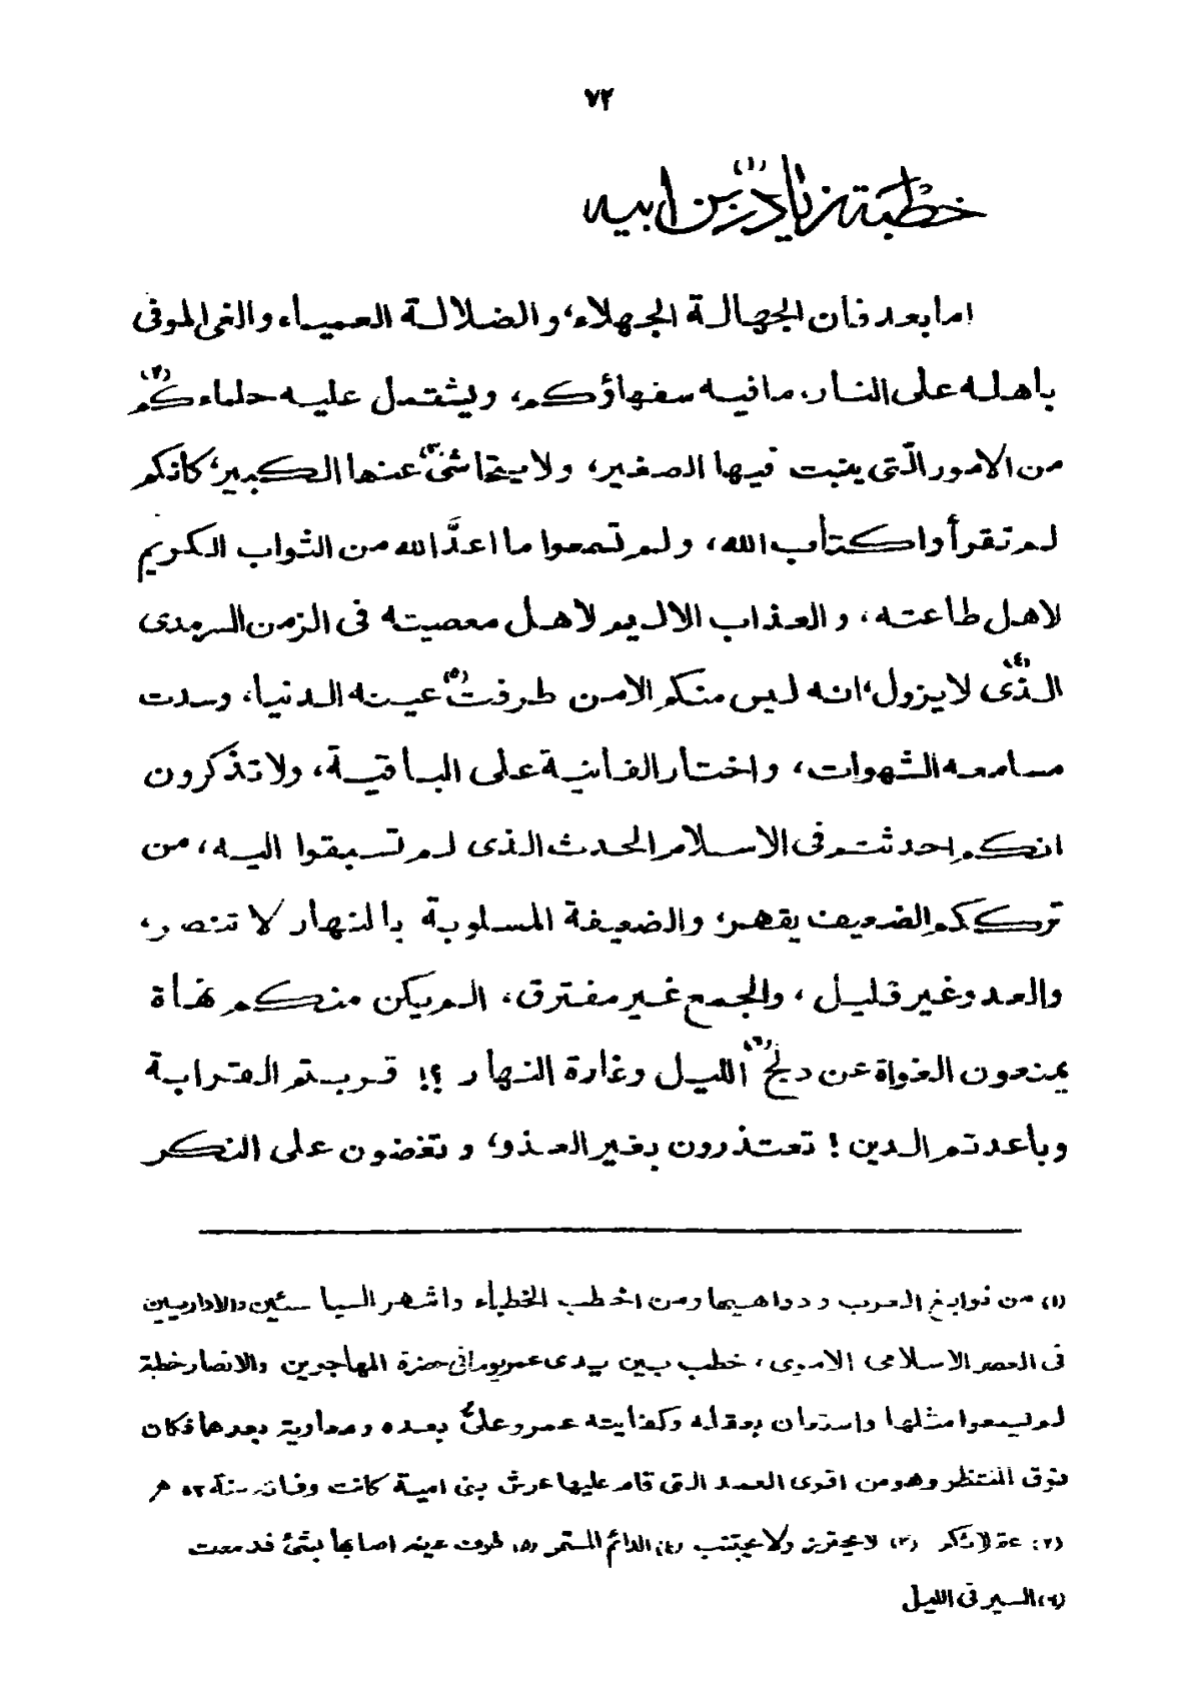 ٧٢
خطبة زياد (١) بن ابيه
اما بعد فان الجهالة الجهلاء، والضلالة العمياء والغى الموفى
باهله على النار، ما فيه سفهاؤكم، ويشتمل عليه حلماءكم (٢)
من الامور الّتى ينبت فيها الصغير، ولا يتحاشى (٣) عنها الكبير، كانكم
لم تقرأوا كتاب الله، ولم تسمعوا ما اعدَّ الله من الثواب الكريم
لاهل طاعته، والعذاب الاليم لاهل معصيته فى الزمن السرمدى (٤)
الذى لا يزول، انه ليس منكم الا من طرفت (٥) عينه الدنيا، وسدت
مسامعه الشهوات، واختار الفانية على الباقية، ولا تذكرون
انكم احدثتم فى الاسلام الحدث الذى لم تسبقوا اليه، من
ترككم الضعيف يقهر، والضعيفة المسلوبة بالنهار لا تنصر،
والعدو غير قليل، والجمع غير مفترق، الم يكن منكم نهاة
يمنعون الغواة عن دلج (٦) الليل وغارة النهار ؟! قربتم القرابة
وباعدتم الدين ! تعتذرون بغير العذر، وتغضون على النكر
(١) من نوابغ العرب ودواهيها ومن اخطب الخطباء واشهر السياسيين والاداريين
فى العصر الاسلامى الاموى، خطب بين يدى عمر يوما فى حضرة المهاجرين والانصار خطبة
لم يسمعوا مثلها واستعان بعقله وكفايته عمر وعلىّ بعده ومعاوية بعدها فكان
فوق المنتظر وهو من اقوى العمد التى قام عليها عرش بنى امية كانت وفاته سنة ٥٣ هـ
(٢) عقلائكم (٣) لا يحترز ولا يجتنب (٤) الدائم المستمر (٥) طرفت عينه اصابها بشئ فدمعت
(٦) السير فى الليل